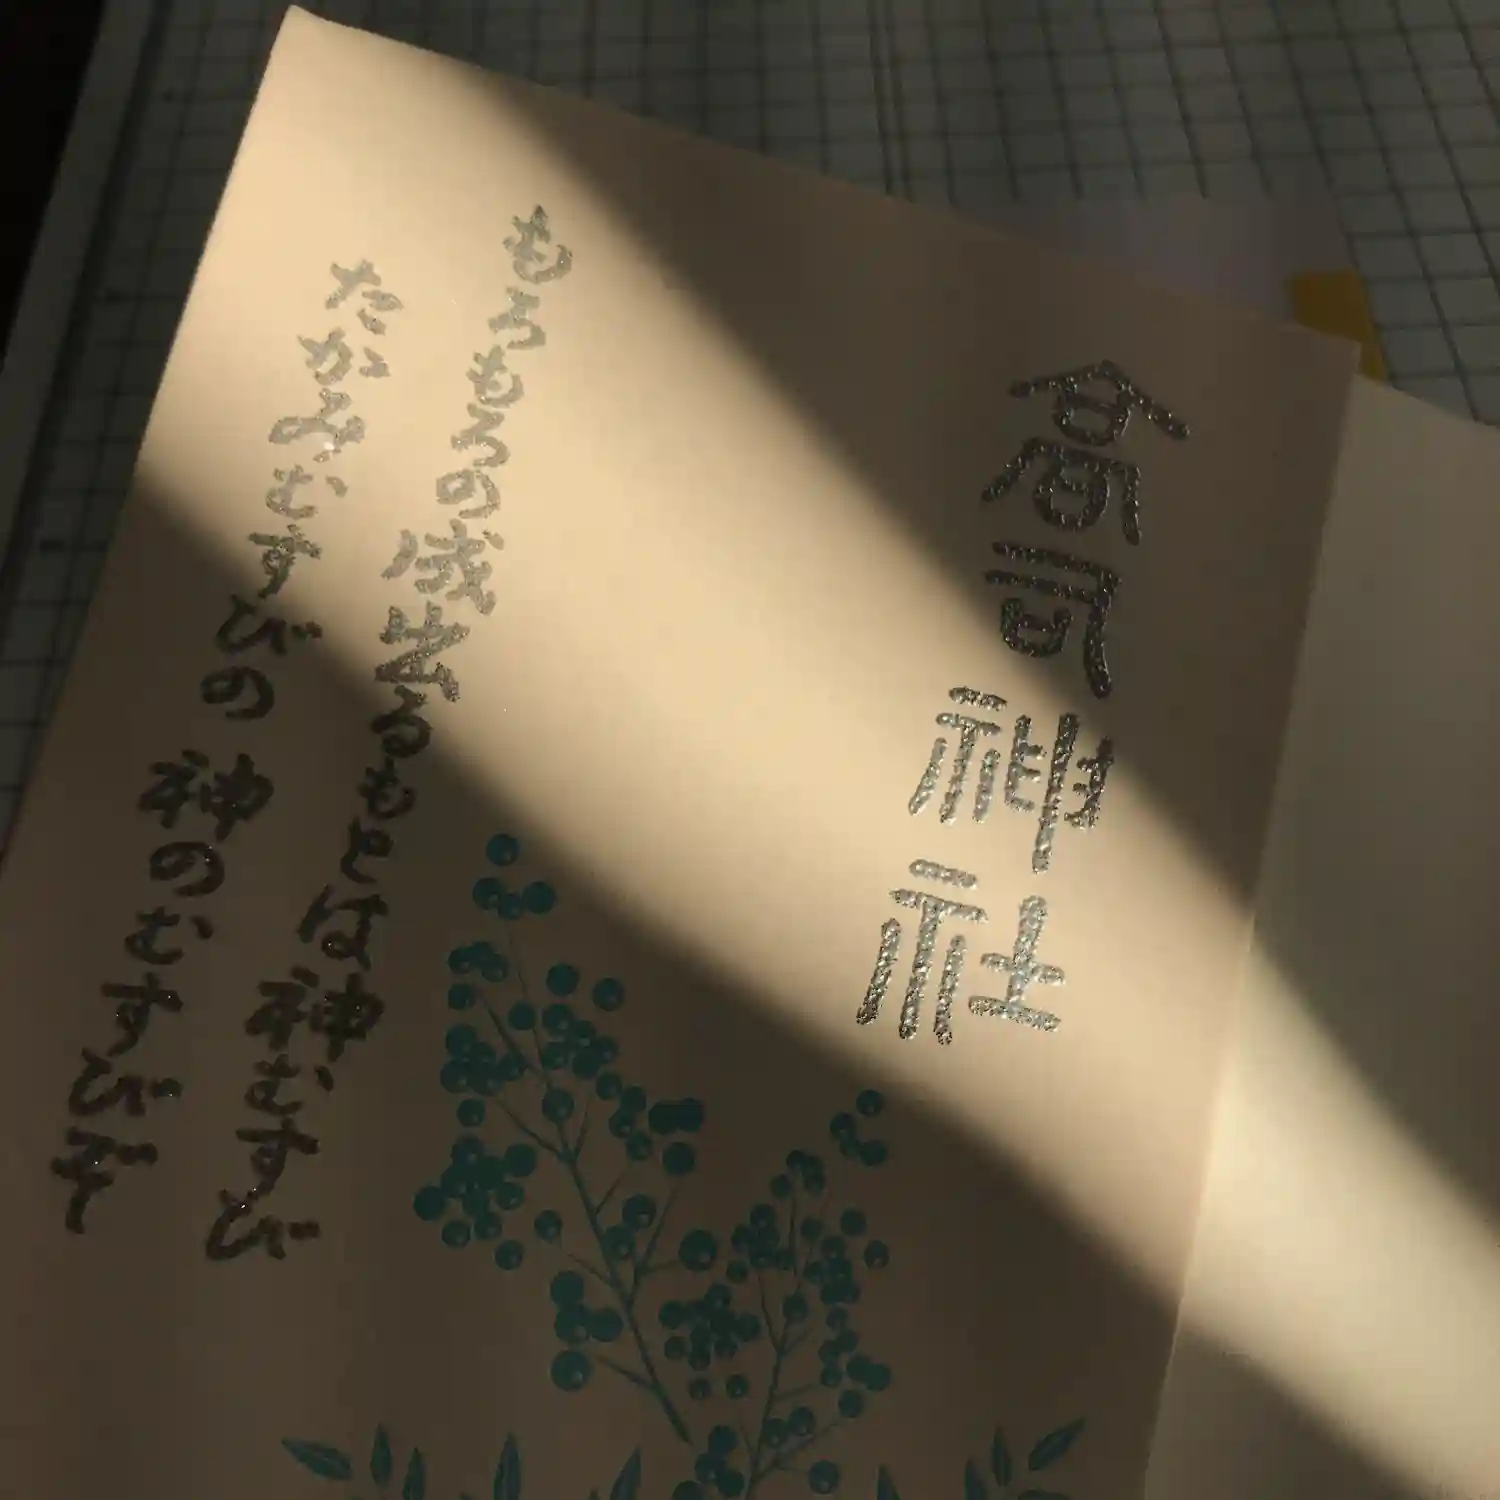 高司神社
もろもろの成出るもとは神むすび
たかみむすびの神のむすびぞ